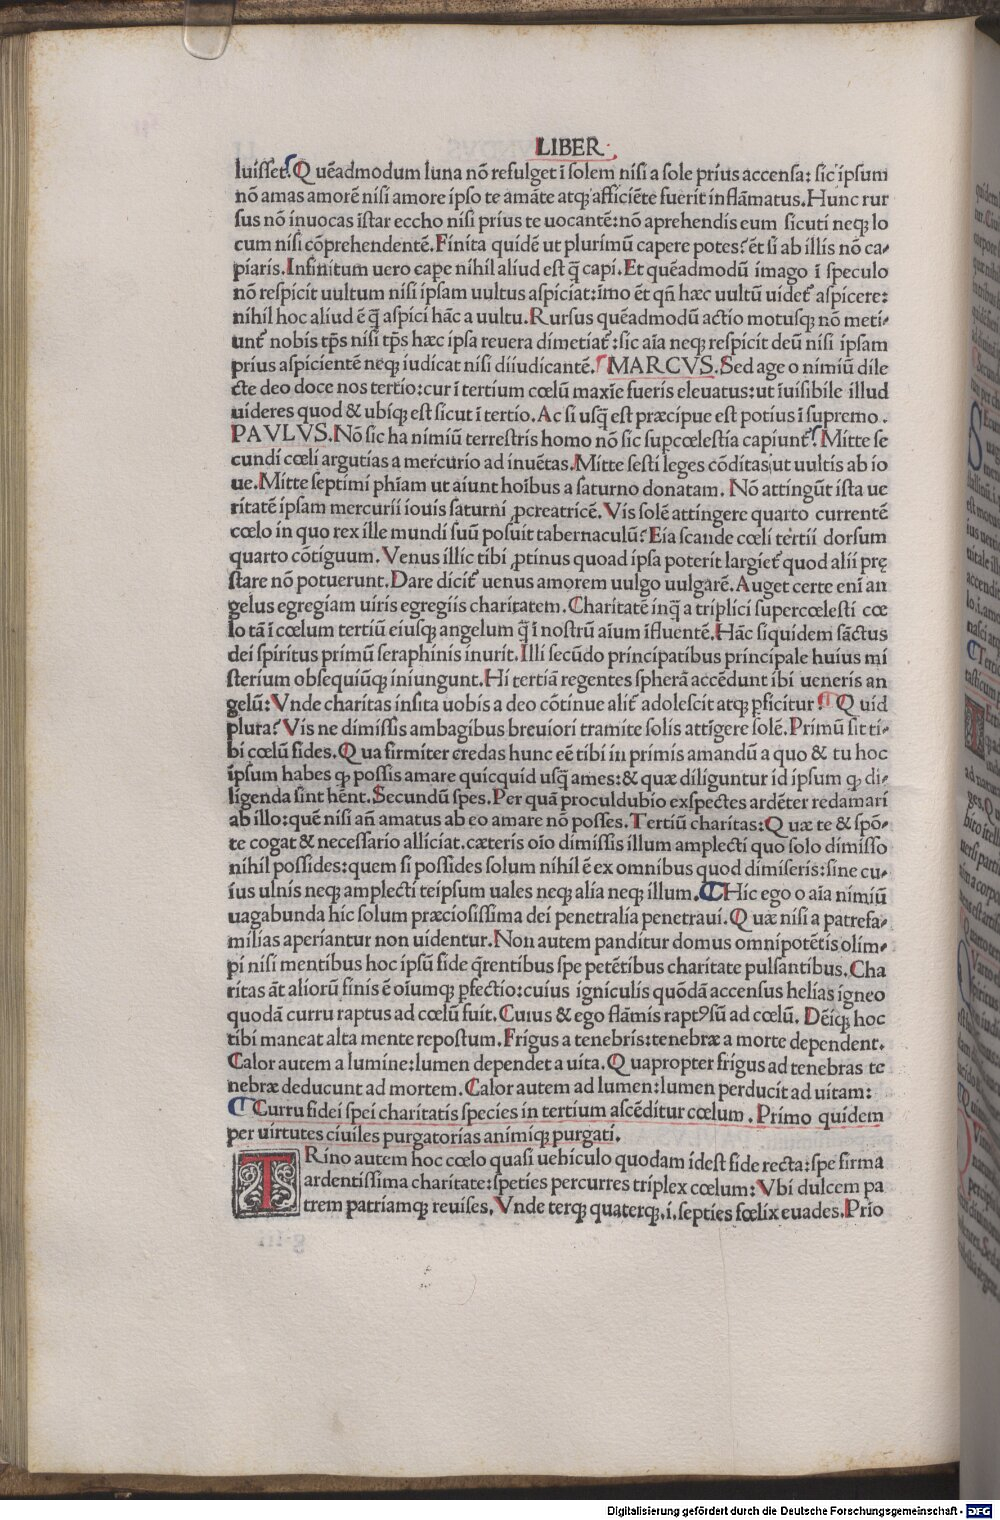 LIBER
luisset? Quēadmodum luna nō refulget ī solem nisi a sole prius accensa: sic ipsum
nō amas amorē nisi amore ipso te amāte atq; afficiēte fuerit inflāmatus. Hunc rur
sus nō inuocas īstar eccho nisi prius te uocantē: nō aprehendis eum sicuti neq; lo
cum nisi cōprehendentē. Finita quidē ut plurimū capere potes? ēt si ab illis nō ca-
piaris. Infinitum uero cape nihil aliud est q̄ capi. Et quēadmodū imago ī speculo
nō respicit uultum nisi ipsam uultus aspiciat: imo ēt qñ hæc uultū uidet᷑ aspicere:
nihil hoc aliud ē q̄ aspici hāc a uultu. Rursus quēadmodū actio motusq; nō meti-
unt᷑ nobis tp̄s nisi tp̄s hæc ipsa reuera dimetiat᷑: sic aīa neq; respicit deū nisi ipsam
prius aspicientē neq; iudicat nisi diiudicantē. ¶ MARCVS. Sed age o nimiū dile
cte deo doce nos tertio: cur ī tertium cœlū maxīe fueris eleuatus: ut īuisibile illud
uideres quod & ubiq; est sicut ī tertio. Ac si usq̄ est præcipue est potius ī supremo.
PAVLVS. Nō sic ha nimiū terrestris homo nō sic supcœlestia capiunt᷑. Mitte se
cundi cœli argutias a mercurio ad inuētas. Mitte sesti leges cōditas ut uultis ab io
ue. Mitte septimi phīam ut aiunt hoībus a saturno donatam. Nō attingūt ista ue
ritatē ipsam mercurii iouis saturni ꝓcreatricē. Vis solē attingere quarto currentē
cœlo in quo rex ille mundi suū posuit tabernaculū? Eia scande cœli tertii dorsum
quarto cōtiguum. Venus illic tibi ꝓtinus quoad ipsa poterit largiet᷑ quod alii prę
stare nō potuerunt. Dare dicit᷑ uenus amorem uulgo uulgarē. Auget certe enī an
gelus egregiam uiris egregiis charitatem. Charitatē inq̄ a triplici supercœlesti cœ
lo tā ī cœlum tertiū eiusq; angelum q̄ ī nostrū aīum īfluentē. Hāc siquidem sāctus
dei spiritus primū seraphinis inurit. Illi secūdo principatibus principale huius mi
sterium obsequiūq; iniungunt. Hi tertiā regentes spherā accēdunt ibi ueneris an
gelū: Vnde charitas insita uobis a deo cōtinue alit᷑ adolescit atq; ꝑficitur. ¶ Quid
plura? Vis ne dimissis ambagibus breuiori tramite solis attīgere solē. Primū sit ti-
bi cœlū fides. Qua firmiter credas hunc eē tibi in primis amandū a quo & tu hoc
ipsum habes q; possis amare quicquid usq̄ ames: & quæ diliguntur id ipsum q; di-
ligenda sint hēnt. Secundū spes. Per quā proculdubio exspectes ardēter redamari
ab illo: quē nisi añ amatus ab eo amare nō posses. Tertiū charitas: Quæ te & spō-
te cogat & necessario alliciat. cæteris oīo dimissis illum amplecti quo solo dimisso
nihil possides: quem si possides solum nihil ē ex omnibus quod dimiseris: sine cu-
ius ulnis neq; amplecti teipsum uales neq; alia neq; illum. ¶ Hic ego o aīa nimiū
uagabunda hic solum præciosissima dei penetralia penetraui. Quæ nisi a patrefa-
milias aperiantur non uidentur. Non autem panditur domus omnipotētis olim-
pi nisi mentibus hoc ipsū fide q̄rentibus spe petētibus charitate pulsantibus. Cha
ritas āt aliorū finis ē oīumq; ꝑfectio: cuius igniculis quōdā accensus helias igneo
quodā curru raptus ad cœlū fuit. Cuius & ego flāmis raptꝰ sū ad cœlū. Dēiq; hoc
tibi maneat alta mente repostum. Frigus a tenebris: tenebræ a morte dependent.
Calor autem a lumine: lumen dependet a uita. Quapropter frigus ad tenebras te
nebræ deducunt ad mortem. Calor autem ad lumen: lumen perducit ad uitam:
¶ Curru fidei spei charitatis species in tertium ascēditur cœlum. Primo quidem
per uirtutes ciuiles purgatorias animiq; purgati.
TRino autem hoc cœlo quasi uehiculo quodam idest fide recta: spe firma
ardentissima charitate: speties percurres triplex cœlum: Vbi dulcem pa
trem patriamq; reuises. Vnde terq; quaterq; .i. septies fœlix euades. Prio
Digitalisierung gefördert durch die Deutsche Forschungsgemeinschaft - DFG